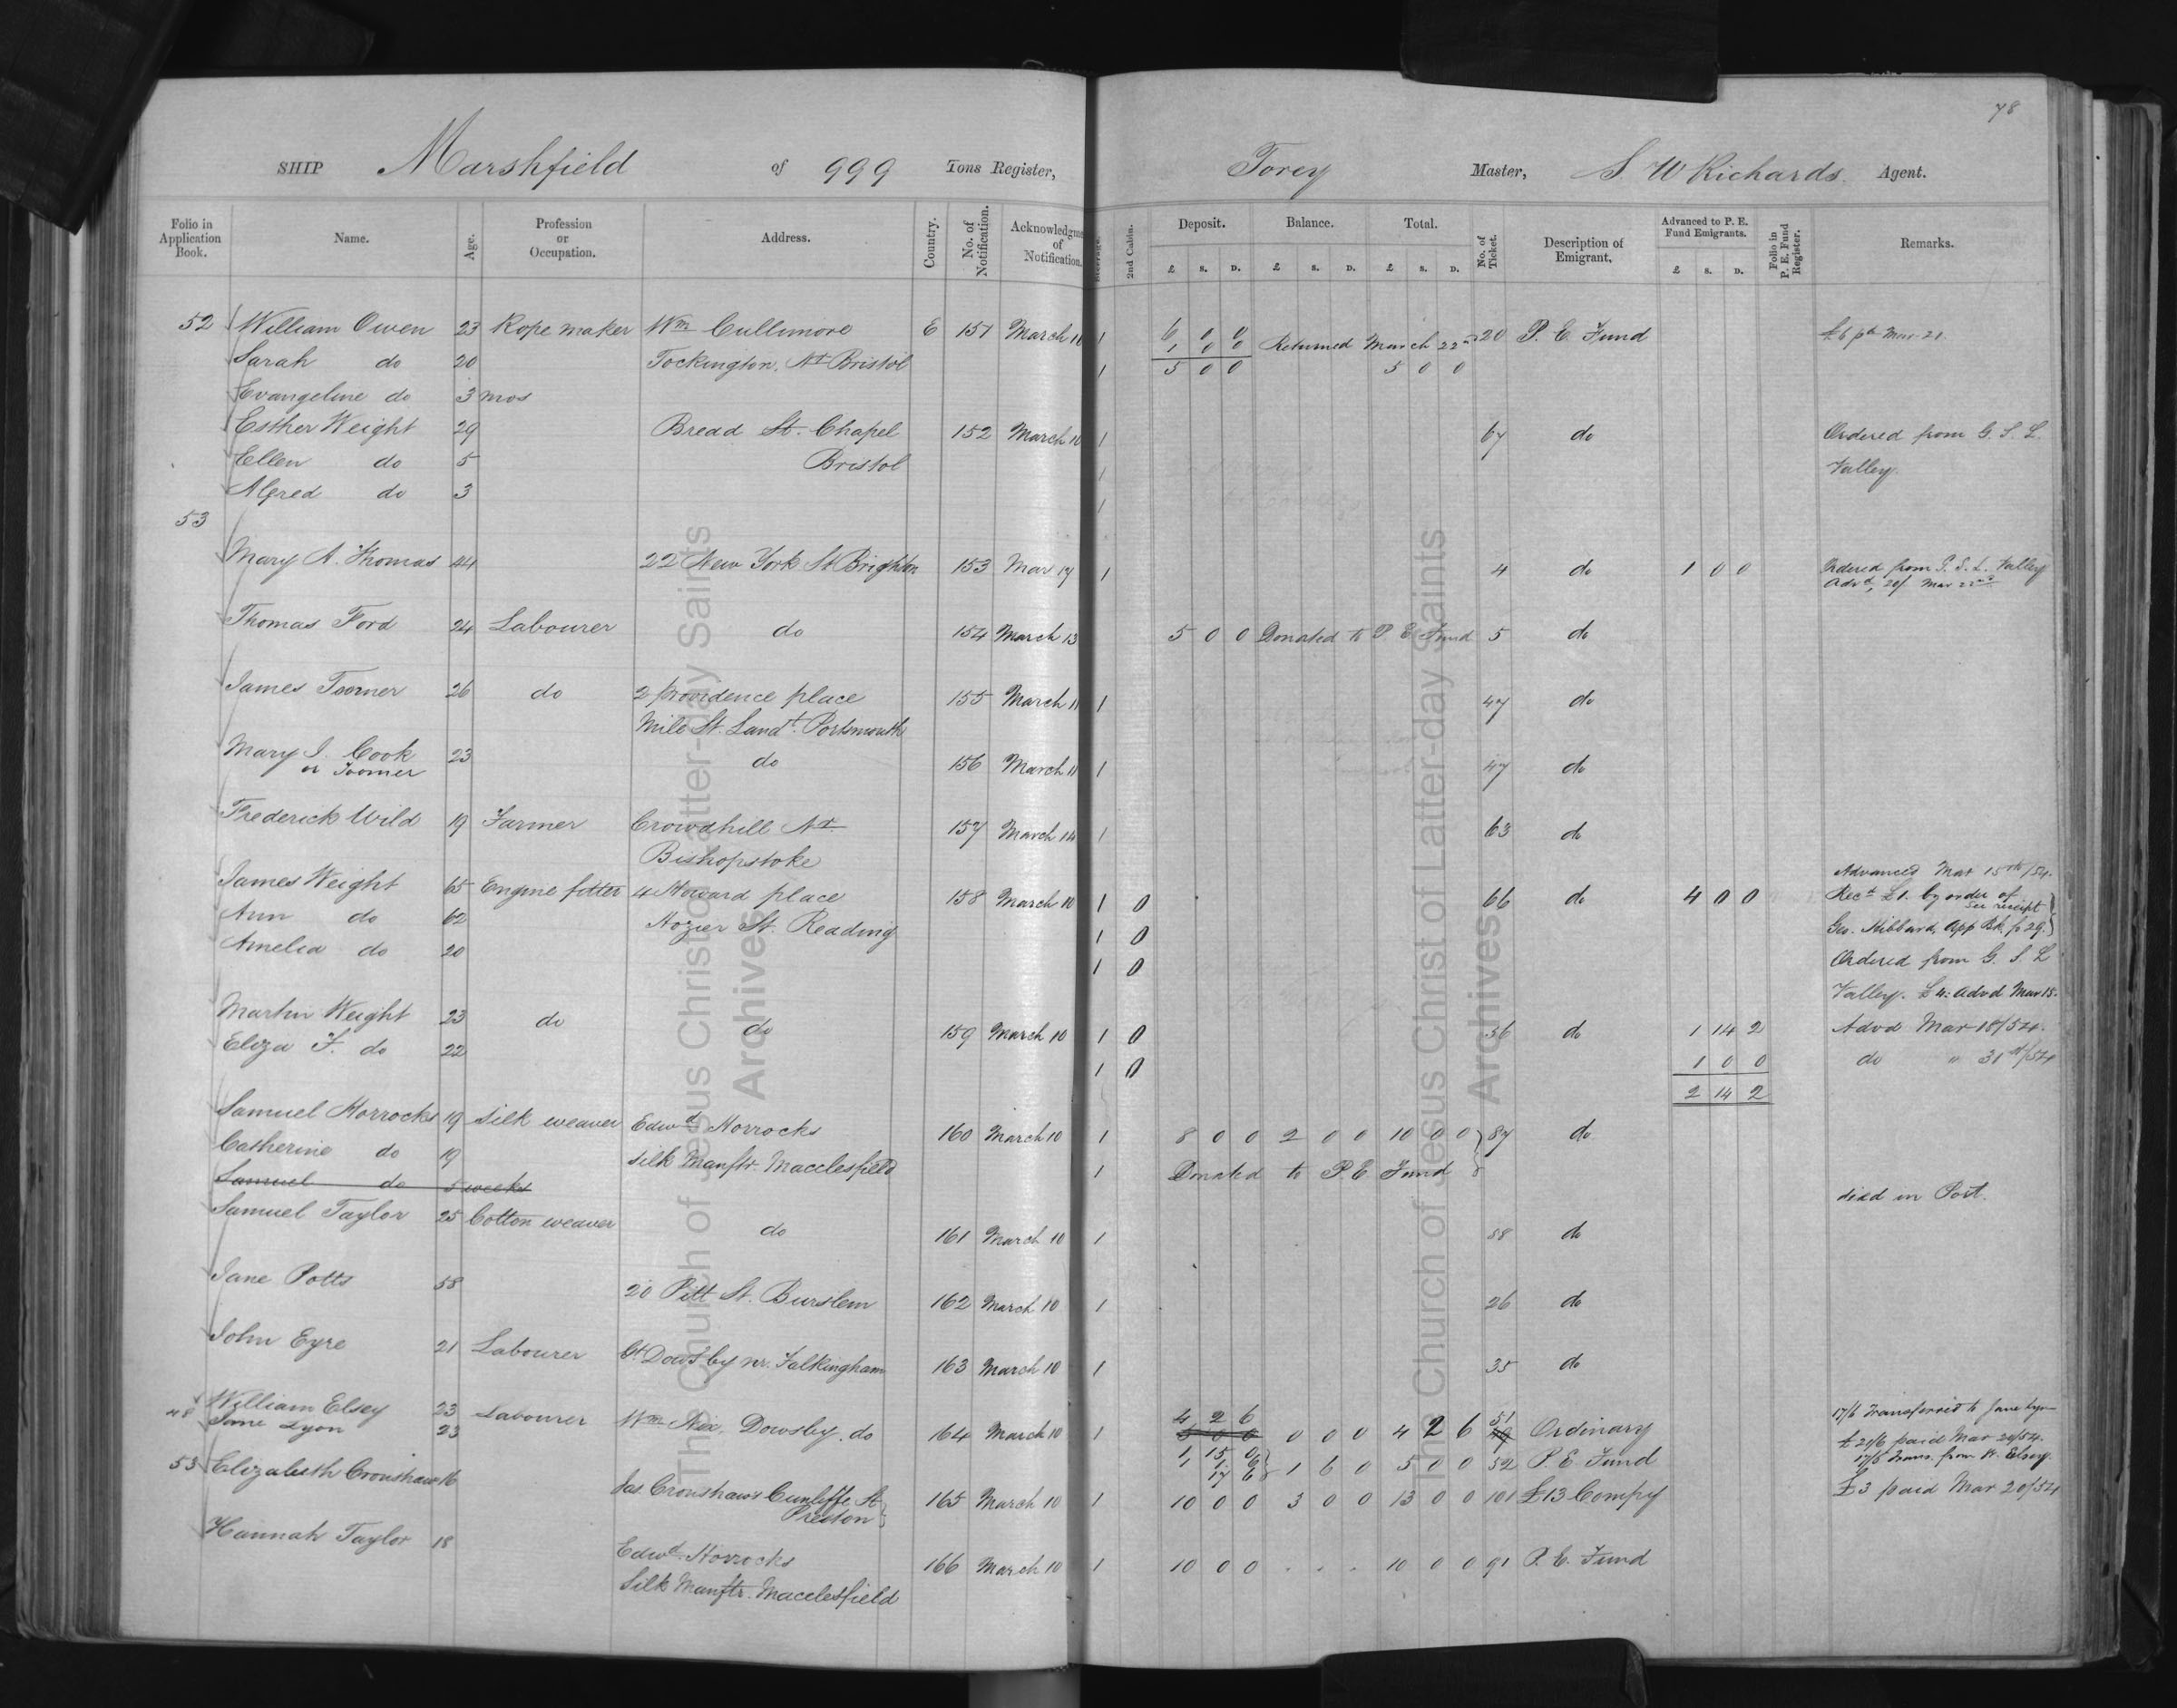 78
SHIP Marshfield of 999 Tons Register, Torey Master, S. W Richards. Agent.
Folio in Application Book. Name. Age. Profession or Occupation. Address. Country. No. of Notification. Acknowledgme of Notification. 2nd Cabin. Deposit. Balance. Total. No. of Ticket. Description of Emigrant, Advanced to P. E. Fund Emigrants. Folio in P. E. Fund Register. Remarks.
£ S. D. £ S. D. £ S. D. £ S. D.
52 William Owen 23 Rope maker Wm Cullimore E 151 March 10 1 6 0 0 20 P. E Fund £6 pd Mar 21.
1 0 0 Returned March 22nd
Sarah do 20 Tockington, Nr Bristol 1 5 0 0 5 0 0
Evangeline do 3 mos
Esther Weight 29 Bread St. Chapel 152 March 10 1 67 do Ordered from G. S. L.
Ellen do 5 Bristol 1 Valley.
Alfred do 3 1
53
Mary A. Thomas 44 22 New York St Brighton 153 Mar 17 1 4 do 1 0 0 Ordered from G. S. L. Valley
Advd, 20/ Mar 22nd
Thomas Ford 24 Labourer do 154 March 13 5 0 0 Donated to P. E Fund 5 do
James Toomer 26 do 2 providence place 155 March 11 1 47 do
Mile St. Landt. Portsmouth
Mary J. Cook 23 do 156 March 11 1 47 do
or Toomer
Frederick Wild 19 Farmer Crowdhill Nr 157 March 14 1 63 do
Bishopstoke
Advanced Mar 15th/54.
James Weight 65 Engine fitter 4 Howard place 158 March 10 1 0 66 do 4 0 0 Rect £1. by order of
see receipt
Ann do 62 Hozier St. Reading 1 0 Geo. Hibbard, App Bk p 29.
Amelia do 20 1 0 Ordered from G. S L
Valley. £4: advd Mar 15.
Martin Weight 23 do do 159 March 10 1 0 36 do 1 14 2 Advd Mar 18/54.
Eliza F. do 22 1 0 1 0 0 do " 31st/54
2 14 2
Samuel Horrocks 19 Silk weaver Edwd Horrocks 160 March 10 1 8 0 0 2 0 0 10 0 0 87 do
Catherine do 19 Silk Manftr. Macclesfield 1 Donated to P. E Fund
Samuel do 5 weeks died in Port.
Samuel Taylor 25 Cotton weaver do 161 March 10 1 88 do
Jane Potts 58 20 Pitt St. Burslem 162 March 10 1 26 do
John Eyre 21 Labourer Gt Dowsby nr. Falkingham 163 March 10 1 35 do
48 William Elsey 23 Labourer Wm Nix, Dowsby. do 164 March 10 1 4 2 6 0 0 0 4 2 6 51 Ordinary 17/6 Transferred to Jane Lyon
5 0 0 £2 1/6 paid Mar 20/54.
Jane Lyon 23 1 15 0 1 6 0 5 0 0 52 P. E Fund 17/6 Trans. from W. Elsey.
17 6
53 Elizabeth Cronshaw 16 Jas. Cronshaw Cunliffe St 165 March 10 1 10 0 0 3 0 0 13 0 0 101 £13 Compy £3 paid Mar 20/54
Preston
Hannah Taylor 18 Edwd. Horrocks 166 March 10 1 10 0 0 . . . 10 0 0 91 P. E. Fund
Silk Manftr. Macclesfield
The Church of Jesus Christ of Latter-day Saints
Archives
The Church of Jesus Christ of Latter-day Saints
Archives